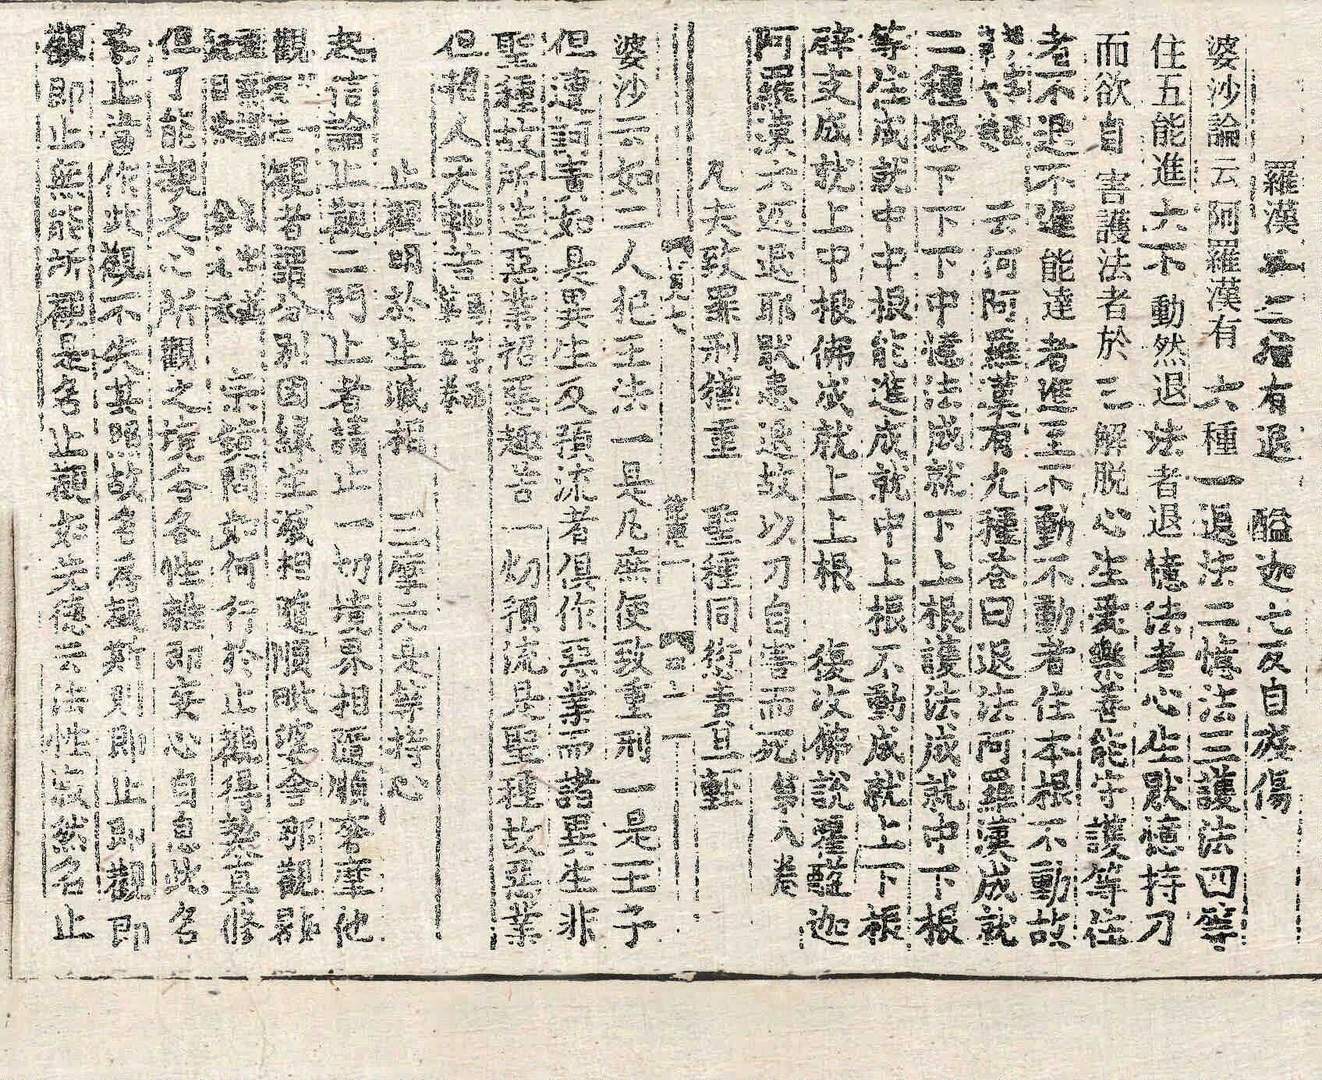 羅漢 有退 醯迦七反自殘傷
婆沙論云阿羅漢有六種一退法二憶法三護法四等
住五能進六不動然退法者退憶法者心生猒憶持刀
而欲自害護法者於三解脫心生愛樂善能守護等住
者不退不進能達者進至不動不動者住本根不動故
云何阿羅漢有九種答曰退法阿羅漢成就
二種根下下下中憶法成就下上根護法成就中下根
等住成就中中根能進成就中上根不動成就上下根
辟支成就上中根佛成就上上根 復次佛說瞿醯迦
阿羅漢六返退耶猒患退故以刀自害而死第八卷
凡夫致罪刑猶重 聖種同愆責且輕
婆沙云如二人犯王法一是凡庶便致重刑一是王子
但遭訶責如是異生及預流者俱作惡業而諸異生非
聖種故所造惡業招惡趣苦一切預流是聖種故惡業
但招人天輕苦
止觀明於生滅相 三摩 是等持心
起信論止觀二門止者謂止一切境界相隨順奢摩他
觀 觀者謂分別因緣生滅相隨順毗婆舍那觀
宗鏡問如何行於止觀得契真修
但了能觀之心所觀之境各各性離即妄心自息此名
止當作此觀不失其照故名為觀斯則即止即觀即
觀即止無能所觀是名止觀如先德云法性寂然名止